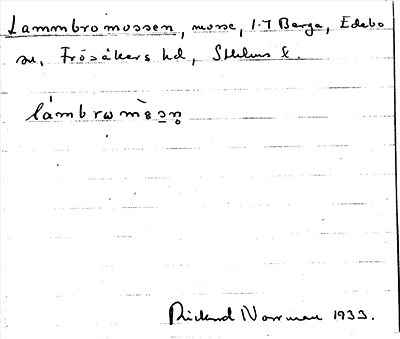 Lammbromossen, mosse, 1:7 Berga, Edebo
sn, Frösåkers hd, Sthlms l.
Rickard Norrman 1933.